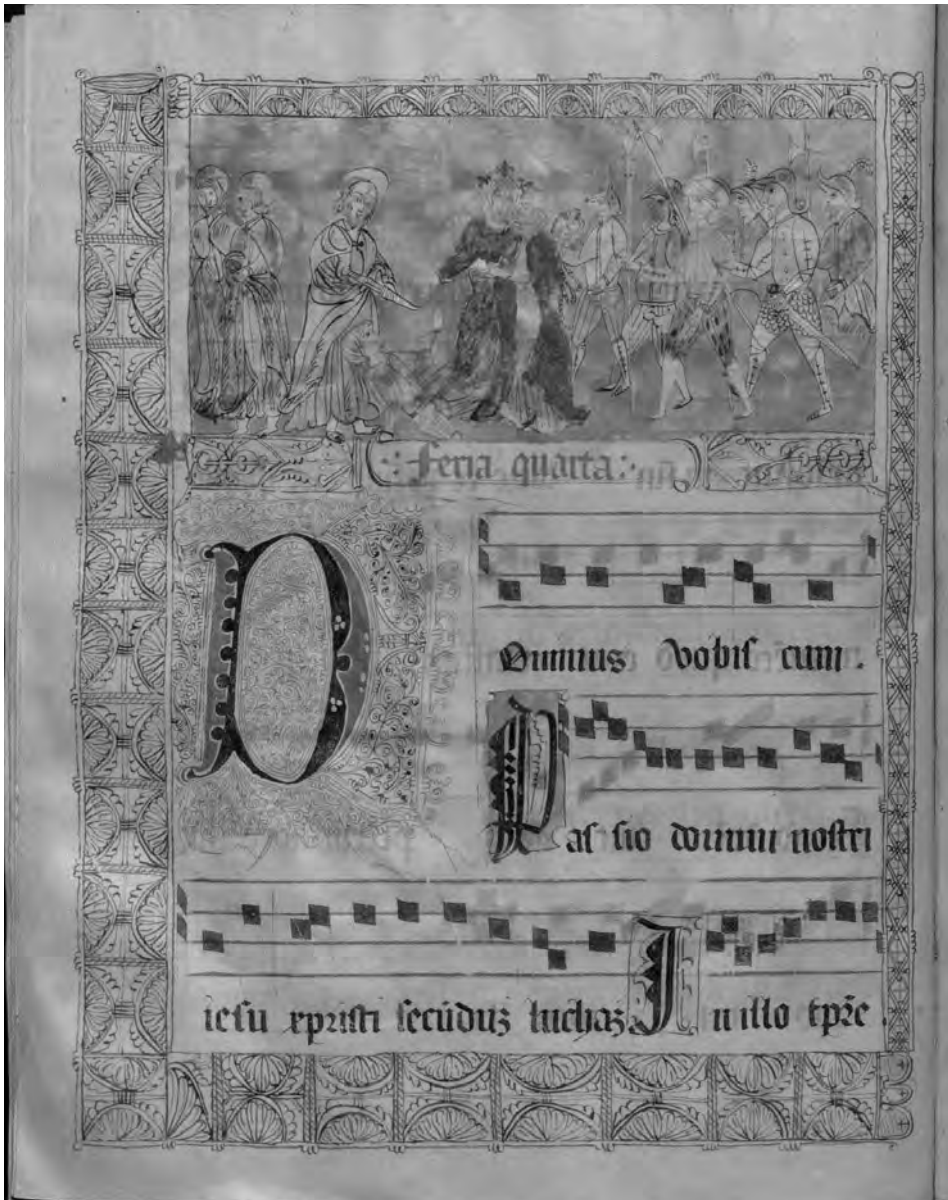 Feria quarta
D
Ominus vobis cum.
Pas sio domini nostri
iesu xpristi secūduȝ luchaȝ In illo tp̄re.